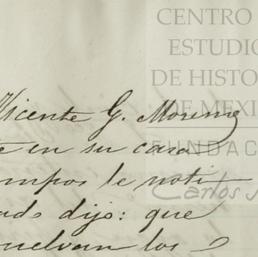 CENTRO
ESTUDIO
DE HISTOR
DE MEXI
FUNDAC
Carlos
Vicente G. Moreno
e en su casa
mpos le noti
ado dijo: que
uelvan los